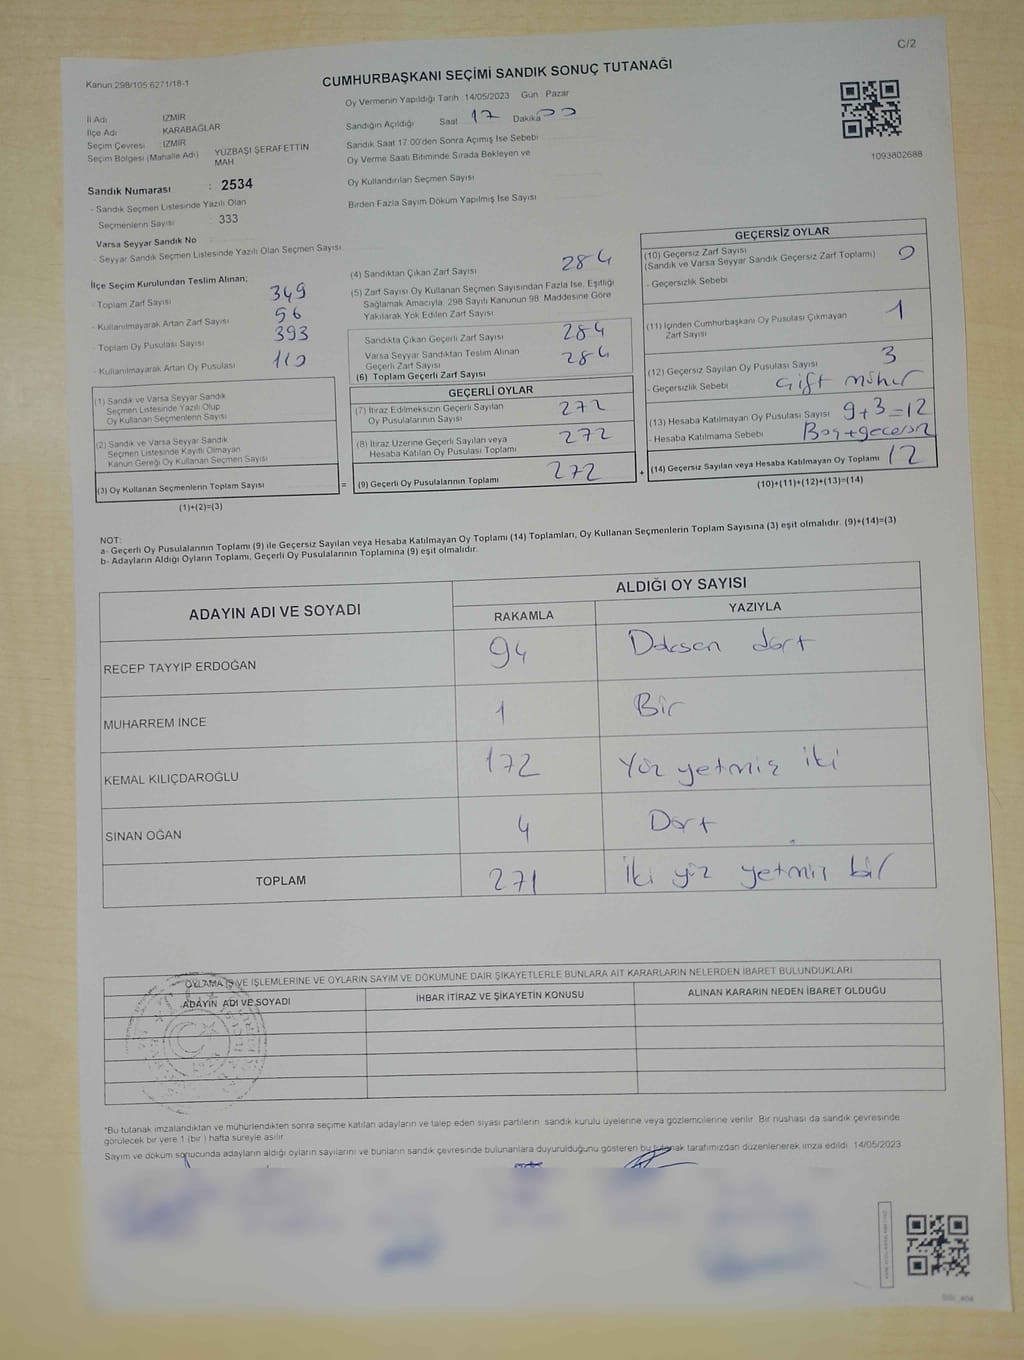 C/2
Kanun 298/105 6271/18-1
CUMHURBAŞKANI SEÇİMİ SANDIK SONUÇ TUTANAĞI
İl Adı : İZMİR
İlçe Adı : KARABAĞLAR
Seçim Çevresi : İZMİR
Seçim Bölgesi (Mahalle Adı) : YÜZBAŞI ŞERAFETTİN MAH
Sandık Numarası : 2534
- Sandık Seçmen Listesinde Yazılı Olan
Seçmenlerin Sayısı : 333
Varsa Seyyar Sandık No
- Seyyar Sandık Seçmen Listesinde Yazılı Olan Seçmen Sayısı
Oy Vermenin Yapıldığı Tarih : 14/05/2023 Gün : Pazar
Sandığın Açıldığı Saat 17 Dakika 00
Sandık Saat 17.00'den Sonra Açımış İse Sebebi
Oy Verme Saati Bitiminde Sırada Bekleyen ve
Oy Kullandırılan Seçmen Sayısı
Birden Fazla Sayım Döküm Yapılmış İse Sayısı
1093602688
İlçe Seçim Kurulundan Teslim Alınan;
- Toplam Zarf Sayısı 349
- Kullanılmayarak Artan Zarf Sayısı 56
- Toplam Oy Pusulası Sayısı 393
- Kullanılmayarak Artan Oy Pusulası 110
(1) Sandık ve Varsa Seyyar Sandık
Seçmen Listesinde Yazılı Olup
Oy Kullanan Seçmenlerin Sayısı
(2) Sandık ve Varsa Seyyar Sandık
Seçmen Listesinde Kayıtlı Olmayan
Kanun Gereği Oy Kullanan Seçmen Sayısı
(3) Oy Kullanan Seçmenlerin Toplam Sayısı
=
(1)+(2)=(3)
(4) Sandıktan Çıkan Zarf Sayısı 284
(5) Zarf Sayısı Oy Kullanan Seçmen Sayısından Fazla İse, Eşitliği
Sağlamak Amacıyla, 298 Sayılı Kanunun 98. Maddesine Göre
Yakılarak Yok Edilen Zarf Sayısı
Sandıkta Çıkan Geçerli Zarf Sayısı 284
Varsa Seyyar Sandıktan Teslim Alınan
Geçerli Zarf Sayısı 284
(6) Toplam Geçerli Zarf Sayısı
GEÇERLİ OYLAR
(7) İtiraz Edilmeksizin Geçerli Sayılan
Oy Pusulalarının Sayısı 272
(8) İtiraz Üzerine Geçerli Sayılan veya
Hesaba Katılan Oy Pusulası Toplamı 272
(9) Geçerli Oy Pusulalarının Toplamı 272
+
GEÇERSİZ OYLAR
(10) Geçersiz Zarf Sayısı
(Sandık ve Varsa Seyyar Sandık Geçersiz Zarf Toplamı) 0
- Geçersizlik Sebebi
(11) İçinden Cumhurbaşkanı Oy Pusulası Çıkmayan
Zarf Sayısı 1
(12) Geçersiz Sayılan Oy Pusulası Sayısı 3
- Geçersizlik Sebebi Çift mühür
(13) Hesaba Katılmayan Oy Pusulası Sayısı 9+3=12
- Hesaba Katılmama Sebebi Boş+geçersiz
(14) Geçersiz Sayılan veya Hesaba Katılmayan Oy Toplamı 12
(10)+(11)+(12)+(13)=(14)
NOT:
a- Geçerli Oy Pusulalarının Toplamı (9) ile Geçersiz Sayılan veya Hesaba Katılmayan Oy Toplamı (14) Toplamları, Oy Kullanan Seçmenlerin Toplam Sayısına (3) eşit olmalıdır. (9)+(14)=(3)
b- Adayların Aldığı Oyların Toplamı, Geçerli Oy Pusulalarının Toplamına (9) eşit olmalıdır.
ADAYIN ADI VE SOYADI
ALDIĞI OY SAYISI
RAKAMLA YAZIYLA
RECEP TAYYİP ERDOĞAN 94 Doksan dört
MUHARREM İNCE 1 Bir
KEMAL KILIÇDAROĞLU 172 Yüz yetmiş iki
SİNAN OĞAN 4 Dört
TOPLAM 271 İki yüz yetmiş bir
OYLAMA İŞ VE İŞLEMLERİNE VE OYLARIN SAYIM VE DÖKÜMÜNE DAİR ŞİKAYETLERLE BUNLARA AİT KARARLARIN NELERDEN İBARET BULUNDUKLARI
ADAYIN ADI VE SOYADI İHBAR İTİRAZ VE ŞİKAYETİN KONUSU ALINAN KARARIN NEDEN İBARET OLDUĞU
*Bu tutanak imzalandıktan ve mühürlendikten sonra seçime katılan adayların ve talep eden siyasi partilerin sandık kurulu üyelerine veya gözlemcilerine verilir. Bir nüshası da sandık çevresinde
görülecek bir yere 1 (bir ) hafta süreyle asılır
Sayım ve döküm sonucunda adayların aldığı oyların sayılarını ve bunların sandık çevresinde bulunanlara duyurulduğunu gösteren bu tutanak tarafımızdan düzenlenerek imza edildi. 14/05/2023